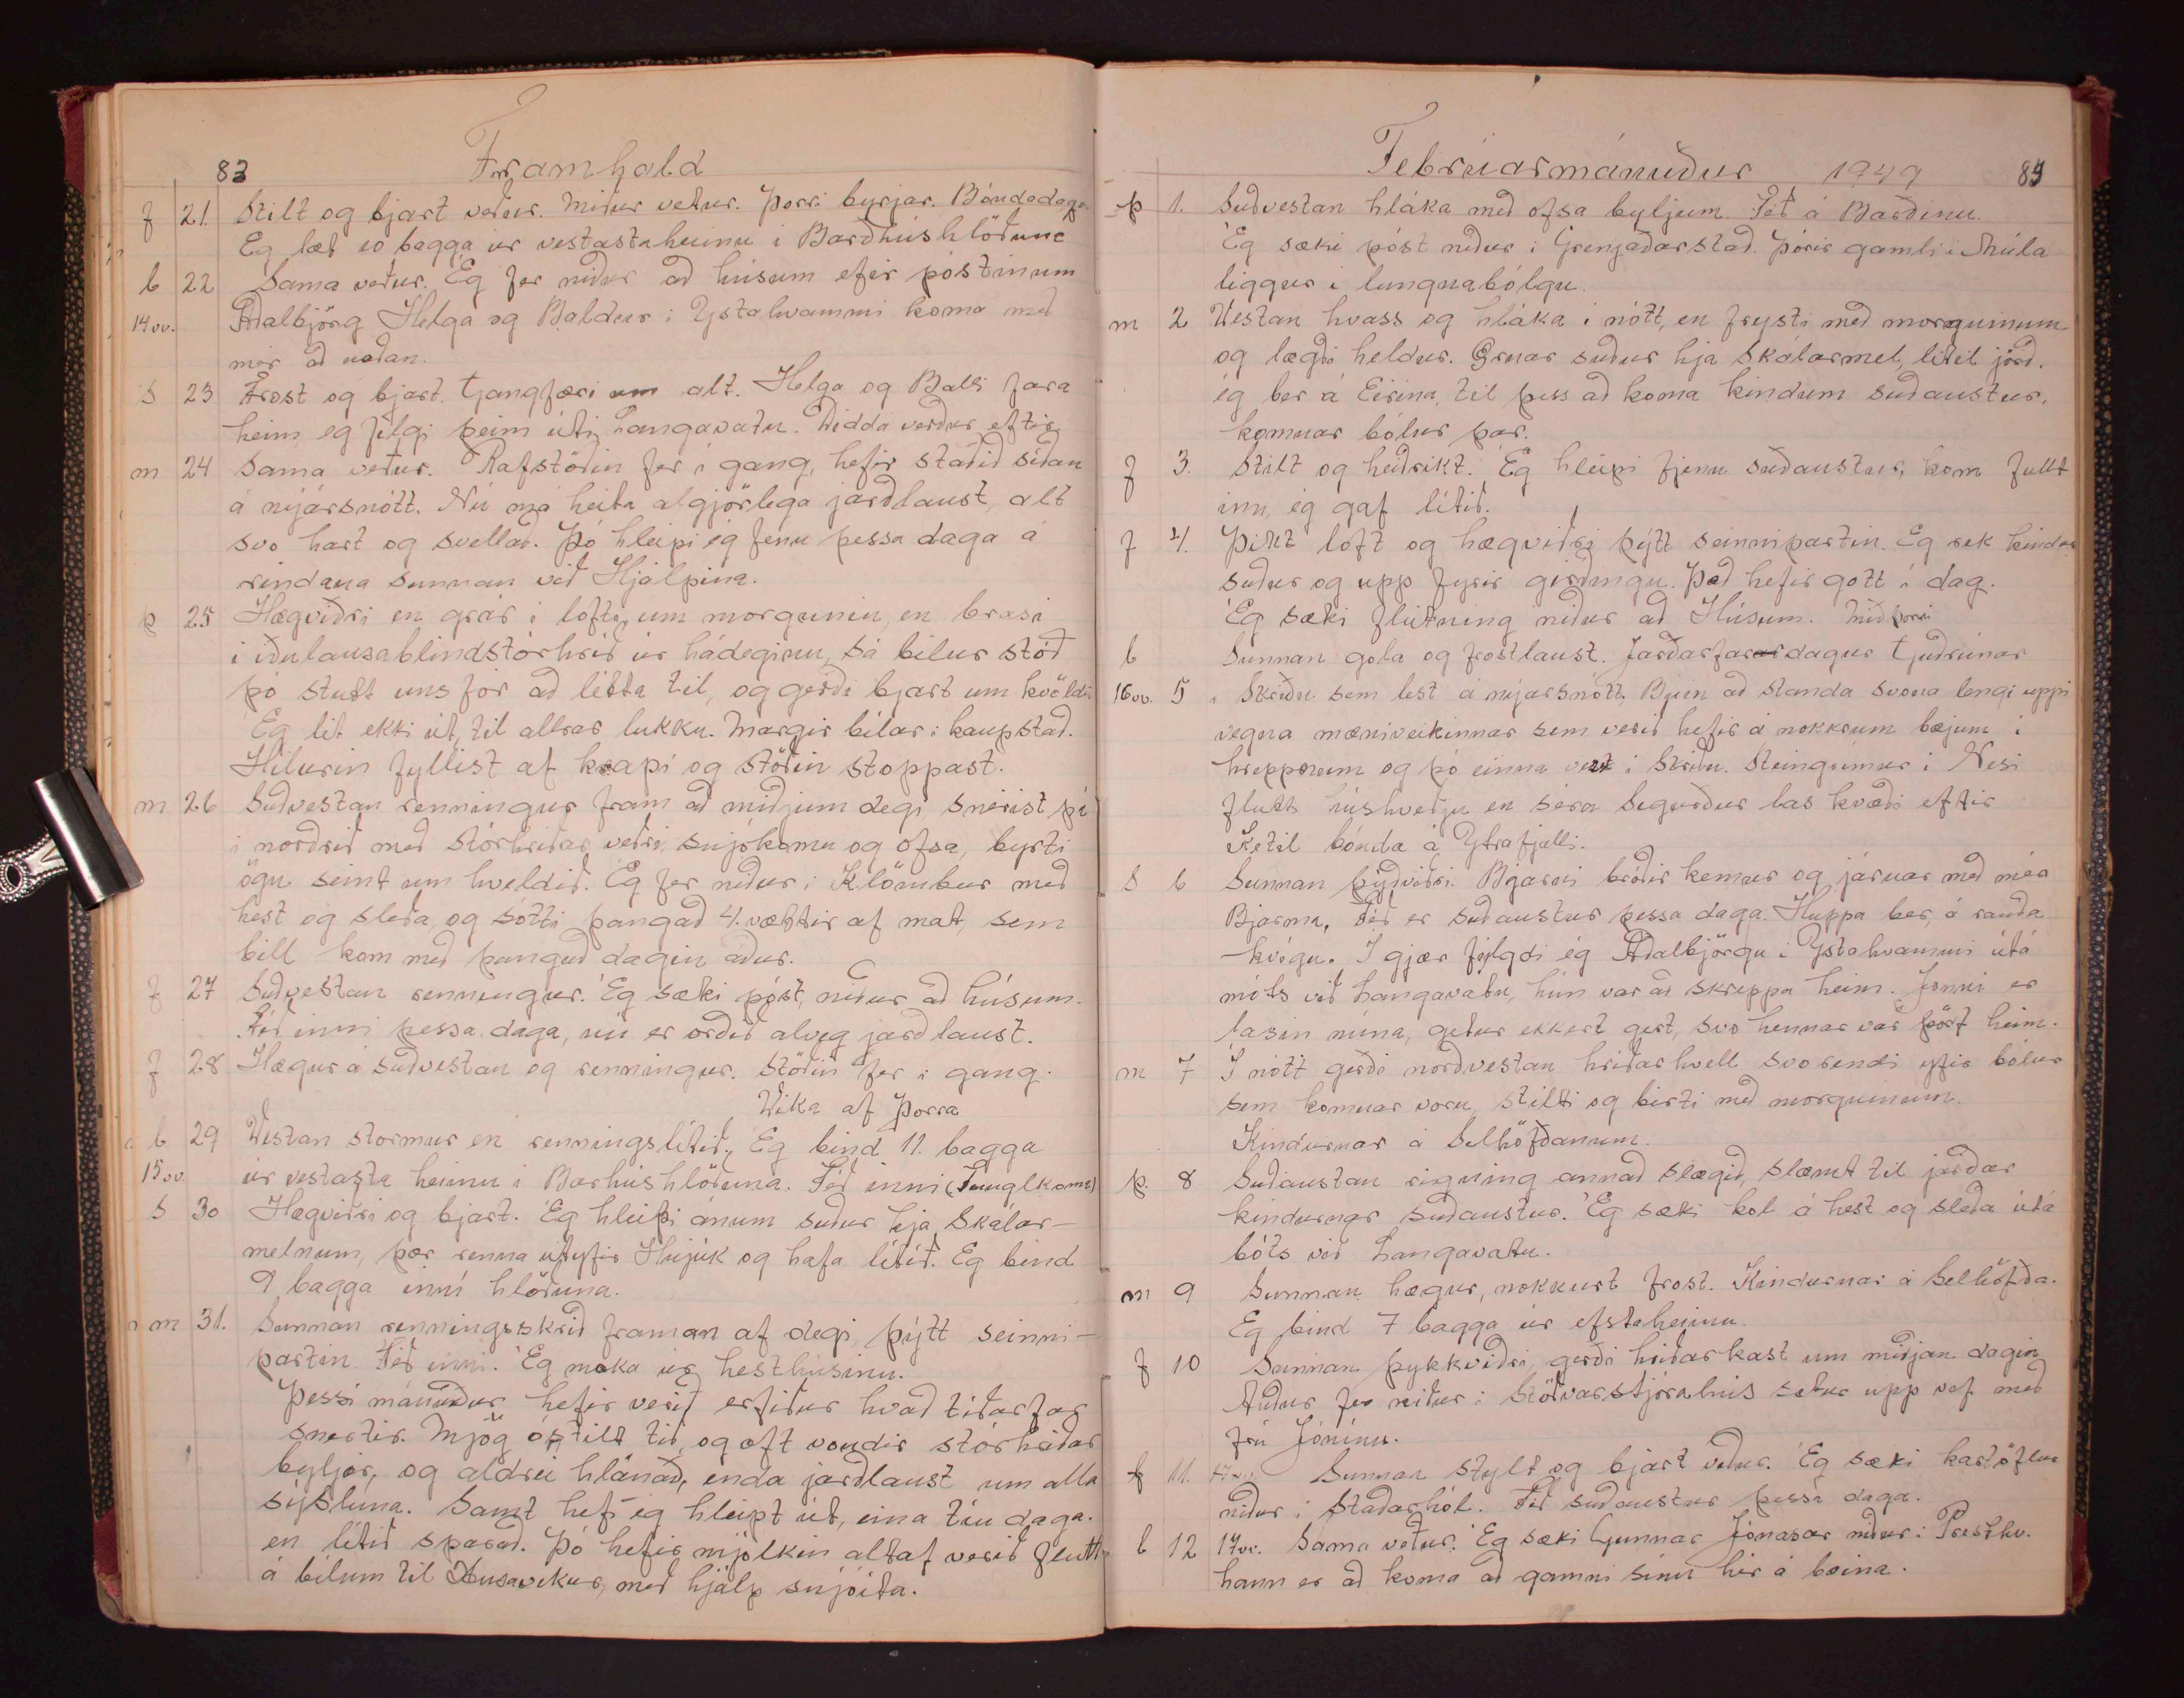 83 Framhald
f 21. Stilt og bjart veður. Miður vetur. Þorri byrjar. Bóndadagur
Eg læt 10 bagga úr vestastaheinu i Barðhúshlöðuna
l 22 Sama veður. Ég fer niður að húsum efir póstinum
14 vv. Aðalbjörg Helga og Baldur i Ystahvammi koma með
mér að neðan.
S 23 Frost og bjart. Gangfæri um alt. Helga og Balli fara
heim eg filgi þeim úti Langavatn. Didda verður eftir.
m 24 Sama veður. Rafstöðin fer i gang, hefir staðið síðan
á nýjársnótt. Nú má heita algjörlega jarðlaust, alt
svo hart og svellað. Þó hleipi ég fénu þessa daga á
rindana sunnan við Hjálpina.
þ 25 Hægviðri en grár i lofti um morgunin, en brast
i iðulausablindstórhríð úr hádeginu, Sá bilur stóð
þó stutt uns fór að létta til, og gerði bjart um kvöldi
Ég lét ekki út, til allrar lukku. Margir bilar i kaupstað.
Hilurin fyllist af krapi og stöðin stoppast.
m 26 Suðvestan renningur fram að miðjum degi snérist þá
i norðrið með stórhriðar veðri, snjókomu og ofsa, byrti
ögn seint um kveldið. Ég fer niður i Klömbur með
hest og sleða og sótti þangað 4. vættir af mat, sem
bill kom með þangað dagin áður.
f 27 Suðvestan renningur. Ég sæki póst niður að húsum.
Féð inni þessa daga, nú er orðið alveg jarðlaust.
f 28 Hægur á suðvestan og renningur. Stöðin fer i gang.
Vika af Þorra
l 29 Vestan stormur en renningslítið. Ég bind 11. bagga
15 vv. úr vestasta heinu i Barhúshlöðuna. Féð inni (Tunglkoma)
S 30 Hægviðri og bjart. Ég hleipi ánum suður hjá Skálar-
melnum, þær renna útyfir Hnjúk og hafa lítið. Eg bind
9 bagga inní hlöðuna.
m 31. Sunnan renningsskrið framan af degi þýtt seinni-
partin Féð inni. Ég moka úr hesthúsinu.
Þessi mánuður hefir verið erfiður hvað tiðarfar
snertir. Mjög óstilt tið, og oft vondir stórhriðar
byljir, og aldrei hlánað, enda jarðlaust um alla
sýsluna. Samt hef ég hleipt út, eina tíu daga.
en lítið sparað. Þó hefir mjólkin altaf verið flutt
á bílum til Húsavikur, með hjálp snjóíta.
Febrúarmánuður 1949 84
þ 1. Suðvestan hláka með ofsa byljum. Féð á Barðinu.
Ég sæki póst niður i Grenjaðarstað. Þórir gamli i Múla
liggur i lungnabólgu.
m 2 Vestan hvass og hláka i nótt, en frysti með morgninum
og lægði heldur. Grnar suður hjá Skálarmel, litil jörð.
ég ber á Eirina, til þess að koma kindum suðaustur,
komnar bólur þar.
f 3. Stilt og heiðrikt. Ég hleipi fjenu suðaustur, kom fullt
inn, ég gaf lítið.
f 4. Þikt loft og hægviðri þýtt seinnipartin. Eg rek kindur
suður og upp fyrir girðingu. Það hefir gott i dag.
Ég sæki flutning niður að Húsum. Miðþorri
l Sunnan gola og frostlaust. Jarðarfarardagur Guðrúnar
16 vv. 5 i Skriðu sem lést á nýjársnótt, Búin að standa svona lengi uppi
vegna mæniveikinnar sem verið hefir á nokkrum bæjum i
hreppnum og þó einna verst i Skriðu. Steingrimur i Nesi
flutti húskveðju en séra Sigurður las kvæði eftir
Ketil bónda á Ytrafjalli.
S 6 Sunnan þýðviðri. Bjarni bróðir kemur og járnar með mér
Bjarma. Féð er suðaustur þessa daga. Huppa ber, á rauða
kvigu. I gjær fylgdi ég Aðalbjörgu i Ystahvammi útá
móts við Langavatn, hún var að skreppa heim. Jonni er
lasin núna, getur ekkert gert, svo hennar var þörf heim.
m 7 I nótt gerði norðvestan hriðarhvell svo rendi yfir bólur
sem komnar voru, stilti og birti með morgninum.
Kindurnar á Selhöfðanum.
þ. 8 Suðaustan rigning annað slægið, slæmt til jarðar
kindurnar suðaustur. Ég sæki kol á hest og sleða útá
bóts við Langavatn.
m 9 Sunnan hægur, nokkurt frost. Kindurnar á Selhöfða.
Eg bind 7 bagga úr efstaheinu.
f 10 Sunnan þykkviðri, gerði hriðarkast um miðjan dagin
Auður fer niður i Stöðvarstjórahús setur upp vef með
frú Jónínu.
f 11. 17 vv. Sunnan stylt og bjart veður. Ég sæki kartöflur
niður i Staðarhól. Féð suðaustur þessa daga.
l 12 17 vv. Sama veður. Ég sæki Gunnar Jónasar niður i Presthv.
hann er að koma að gamni sínu hér á bæina.